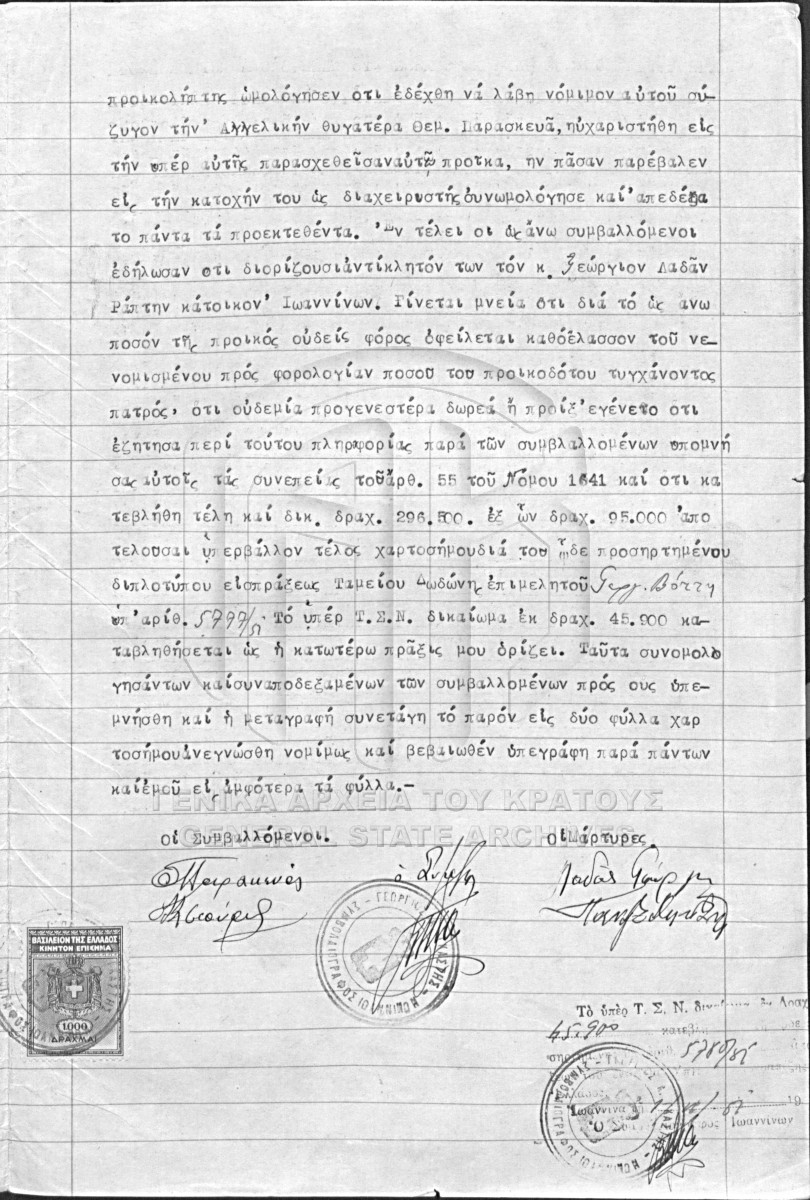 προικολήπτης ὡμολόγησεν ὅτι ἐδέχθη νά λάβη νόμιμον αὐτοῦ σύ-
ζυγον τήν' Αγγελικήν θυγατέρα Θεμ. Παρασκευᾶ, ηὐχαριστήθη εἰς
τήν ὑπέρ αὐτῆς παρασχεθεῖσαναὐτῶ προῖκα, ην πᾶσαν παρέβαλεν
εἰς τήν κατοχήν του ὡς διαχειρυστής συνωμολόγησε καί'απεδέξα
το πάντα τά προεκτεθέντα. 'Εν τέλει οι ὡς ἄνω συμβαλλόμενοι
ἐδήλωσαν οτι διορίζουσιἀντίκλητόν των τόν κ. Γεώργιον Λαδᾶν
Ράπτην κάτοικον' Ιωαννίνων. Γίνεται μνεία ὅτι διά τό ὡς ανω
ποσόν τῆς προικός οὐδείς φόρος ὀφείλεται καθόἔλασσον τοῦ νε-
νομισμένου πρός φορολογίαν ποσοῦ του προικοδότου τυγχάνοντος
πατρός, ότι οὐδεμία προγενεστέρα δωρεά ἤ προίξ'εγένετο οτι
ἐζήτησα περί τούτου πληροφορίας παρά τῶν συμβλαλλομένων υπομνή
σας αὐτοῖς τάς συνεπείας τοῦἄρθ. 55 τοῦ Νόμου 1641 καί οτι κα
τεβλήθη τέλη καί δικ. δραχ. 296.500. ἐξ ὧν δραχ. 95.000 ἀπο
τελουσαι ὑπερβάλλον τέλος χαρτοσήμουδιά του ὧδε προσηρτημένου
διπλοτύπου εἰσπράξεως Ταμείου Δωδώνης ἐπιμελητοῦ Γεργ. Βόττη
ὑπ'αριθ. 5797/51 Τό ὑπέρ Τ.Σ.Ν. δικαίωμα ἐκ δραχ. 45.900 κα-
ταβληθήσεται ὡς ἡ κατωτέρω πρᾶξις μου ὁρίζει. Ταῦτα συνομολο
γησάντων καίσυναποδεξαμένων τῶν συμβαλλομένων πρός ους ὑπε-
μνήσθη καί ἡ μεταγραφή συνετάγη τό παρόν εἰς δύο φύλλα χαρ
τοσήμουἀνεγνώσθη νομίμως καί βεβαιωθέν ὑπεγράφη παρά πάντων
καίἐμοῦ εἰς ἀμφότερα τά φύλλα.-
ΓΕΝΙΚΑ ΑΡΧΕΙΑ ΤΟΥ ΚΡΑΤΟΥΣ
GENERAL STATE ARCHIVES
Οἱ Συμβαλλόμενοι. Οἱ Μάρτυρες.
Λαδᾶς Γεώργ
ΒΑΣΙΛΕΙΟΝ ΤΗΣ ΕΛΛΑΔΟΣ
ΚΙΝΗΤΟΝ ΕΠΙΣΗΜΑ
1000
ΔΡΑΧΜΑΙ
ΣΥΜΒΟΛΑΙΟΓΡΑΦΟΣ ΙΩΑΝΝΙΝΩΝ ΓΕΩΡΓΙΟΣ ΧΑΣΤΗΣ
Τὸ ὑπὲρ Τ. Σ. Ν. δικαίωμα ἐκ Δραχ
45.900
5780/51
Ἰωάννινα
Ὁ Σ Ἰωαννίνων